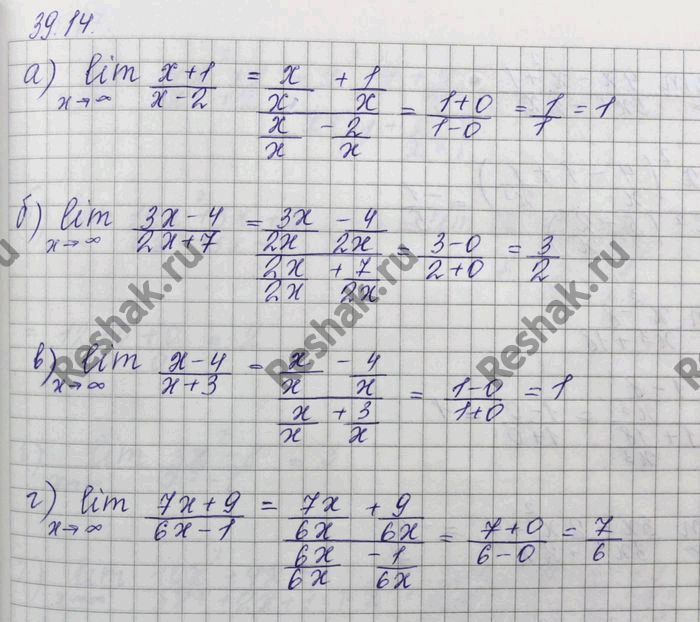 39.14.
а) lim x→∞ (x+1)/(x-2) = (x/x + 1/x)/(x/x - 2/x) = (1+0)/(1-0) = 1/1 = 1
б) lim x→∞ (3x-4)/(2x+7) = (3x/2x - 4/2x)/(2x/2x + 7/2x) = (3-0)/(2+0) = 3/2
в) lim x→∞ (x-4)/(x+3) = (x/x - 4/x)/(x/x + 3/x) = (1-0)/(1+0) = 1
г) lim x→∞ (7x+9)/(6x-1) = (7x/6x + 9/6x)/(6x/6x - 1/6x) = (7+0)/(6-0) = 7/6
Reshak.ru
Reshak.ru